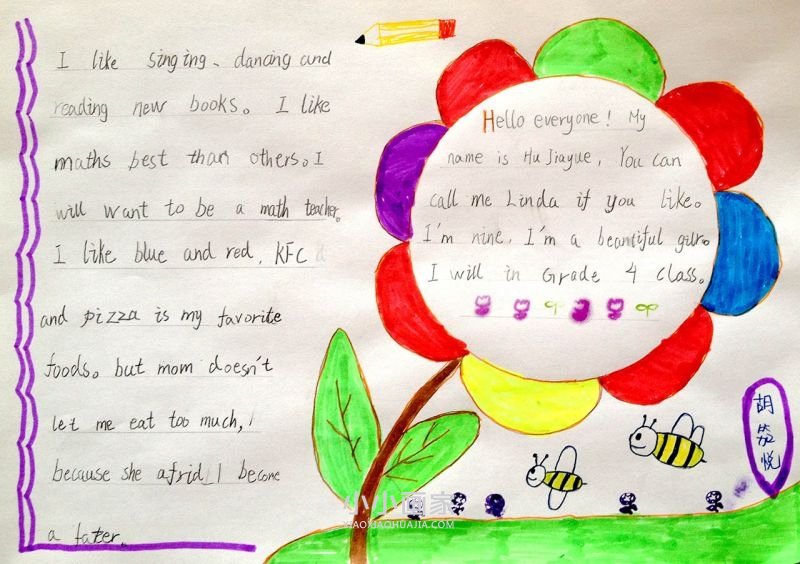 I like singing、dancing and
reading new books。 I like
maths best than others。I
will want to be a math teacher。
I like blue and red, KFC
and pizza is my favorite
foods。but mom doesn't
let me eat too much,
because she afrid I become
a fater。
Hello everyone! My
name is Hu Jiayue, You can
call me Linda if you like。
I'm nine, I'm a beautiful gilr。
I will in Grade 4 class。
胡笳悦
小小画家
XIAOXIAOHUAJIA.COM